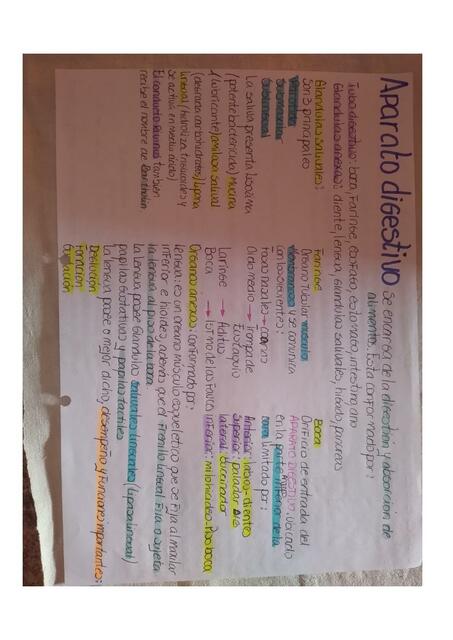 Aparato digestivo
se encarga de la digestion y absorcion de
alimento. Esta conformado por:
Tubo digestivo: boca, Faringe, esofago, estomago, intestino, ano
Glandulas anexas: diente, lengua, Glandulas salivales, higado, pancreas
Glandulas salivales:
Son 3 principales
Parotida
Submaxilar
Sublingual
La saliva presenta lisozima
(potente bactericida) Mucina
(lubricante) amilasa salival
(desdobla carbohidratos) lipasa
lingual (hidroliza trigliceridos y
se activa en medio acido)
El conducto Parotideo tambien
recibe el nombre de
Faringe
Organo tubular musculo
membranoso y se comunica
con los siguientes:
Fosas nasales → coanas
Oido medio → Trompa de
Eustaquio
Laringe → Aditus
Boca → Istmo de las Fauces
Boca
Orificio de entrada del
APARATO DIGESTIVO. Ubicado
en la parte inferior de la
cara limitado por:
Anterior: labios-dientes
Superior: paladar D/B
lateral: buccinador
Inferior: milohioideo. Piso boca
Organos anexos, conformado por:
lengua: es un organo musculo esqueletico que se fija al maxilar
inferior e hioides, ademas que el Frenillo lingual Fija o sujeta
la lengua al piso de la boca
la lengua posee Glandulas salivales linguales (lipasa lingual)
papilas gustativas y papilas tactiles
La lengua posee o mejor dicho, desempeña 4 Funciones importantes:
Deglucion
Fonacion